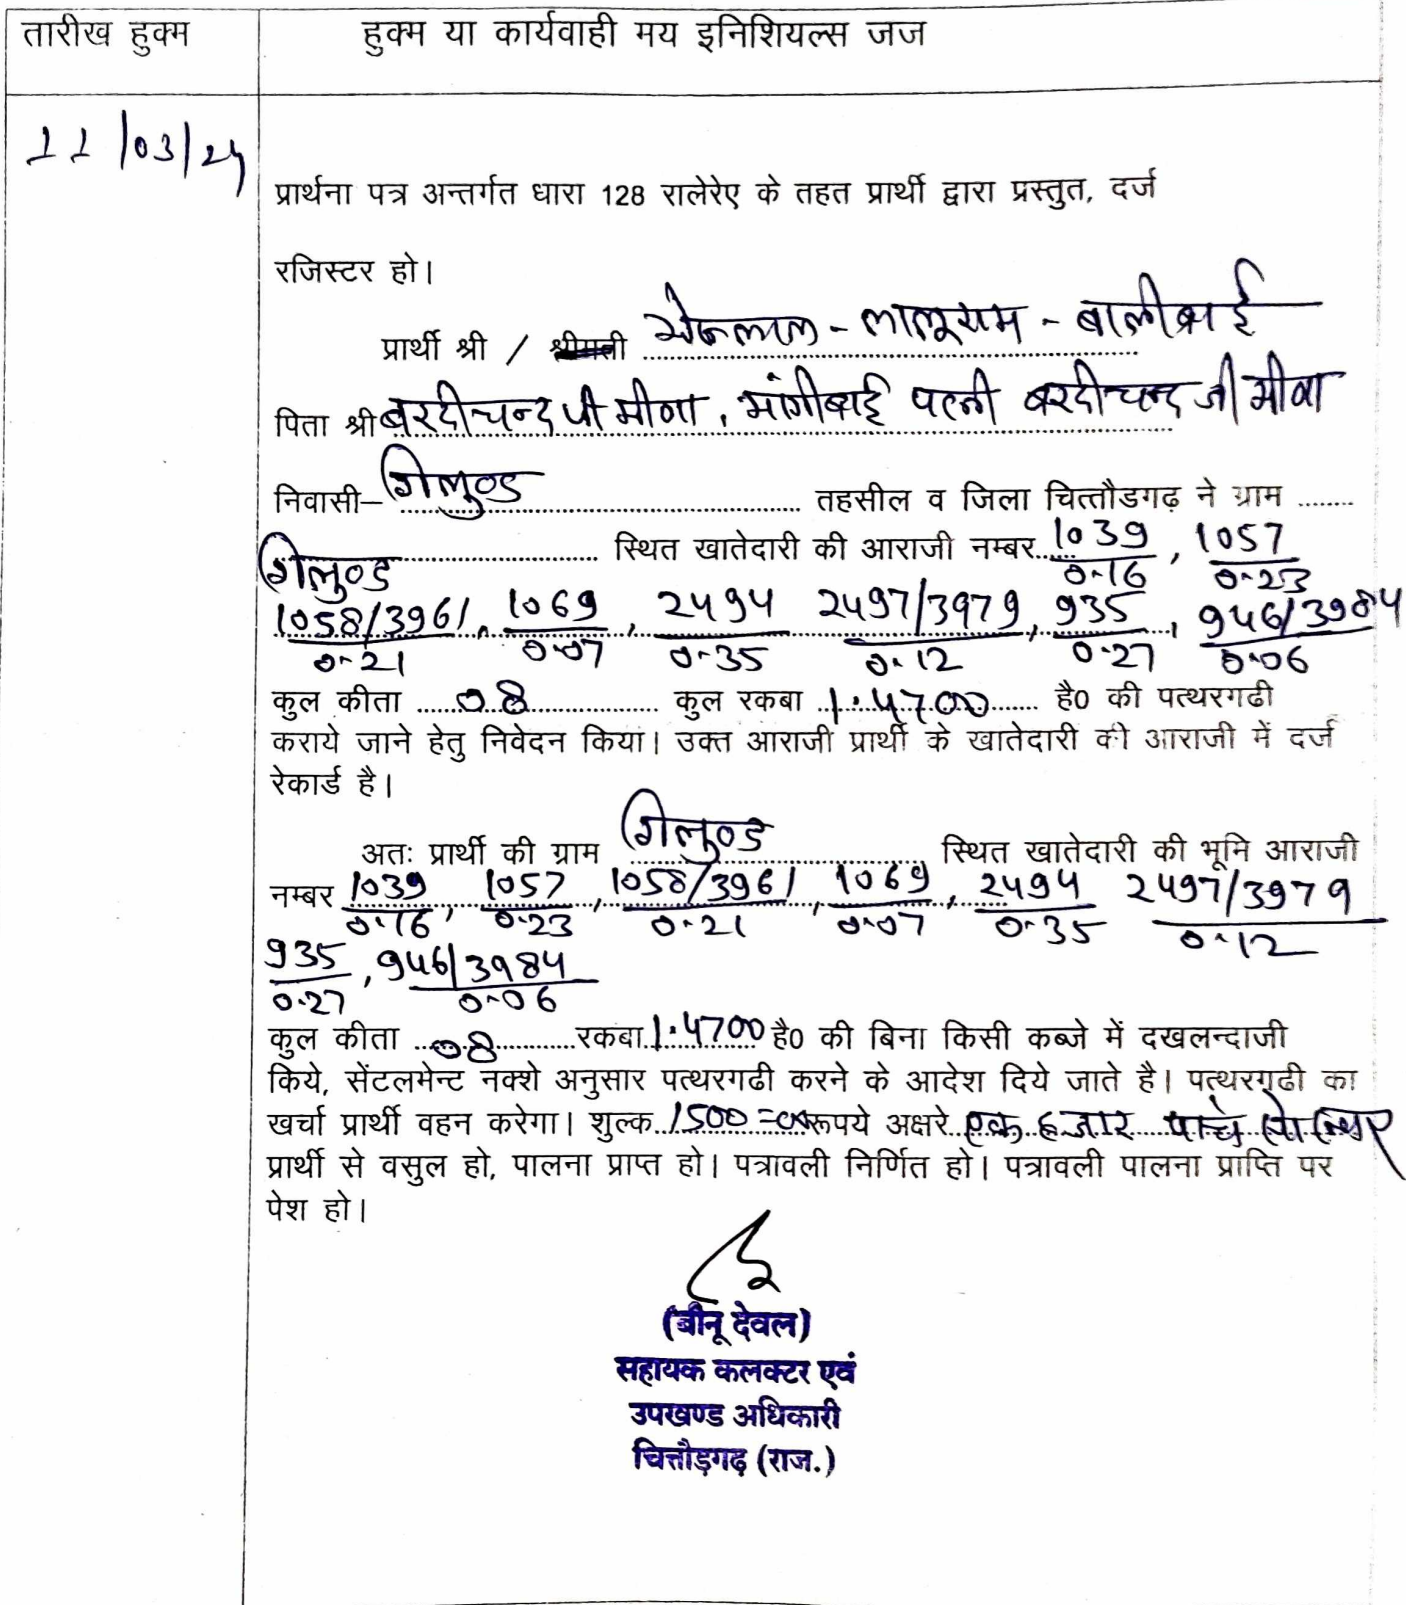 तारीख हुक्म
हुक्म या कार्यवाही मय इनिशियल्स जज
11/03/24
प्रार्थना पत्र अन्तर्गत धारा 128 रालेरेए के तहत प्रार्थी द्वारा प्रस्तुत, दर्ज
रजिस्टर हो।
प्रार्थी श्री / श्रीमती - लालूराम - बालीबाई
पिता श्री बरदीचन्द जी मीणा, मांगीबाई पत्नी बरदीचन्द जी मीणा
निवासी– गिलुण्ड तहसील व जिला चित्तौडगढ़ ने ग्राम
गिलुण्ड स्थित खातेदारी की आराजी नम्बर 1039/0.16, 1057/0.23
1058/3961/0.21, 1069/0.07, 2494/0.35 2497/3979/0.12, 935/0.27, 946/3984/0.06
कुल कीता 08 कुल रकबा 1.4700 है0 की पत्थरगढी
कराये जाने हेतु निवेदन किया। उक्त आराजी प्रार्थी के खातेदारी की आराजी में दर्ज
रेकार्ड है।
अतः प्रार्थी की ग्राम गिलुण्ड स्थित खातेदारी की भूमि आराजी
नम्बर 1039/0.16, 1057/0.23, 1058/3961/0.21, 1069/0.07, 2494/0.35 2497/3979/0.12
935/0.27, 946/3984/0.06
कुल कीता 08 रकबा 1.4700 है0 की बिना किसी कब्जे में दखलन्दाजी
किये, सेंटलमेन्ट नक्शे अनुसार पत्थरगढी करने के आदेश दिये जाते है। पत्थरगढी का
खर्चा प्रार्थी वहन करेगा। शुल्क 1500=00 रूपये अक्षरे एक हजार पांच सो
प्रार्थी से वसुल हो, पालना प्राप्त हो। पत्रावली निर्णित हो। पत्रावली पालना प्राप्ति पर
पेश हो।
(बीनू देवल)
सहायक कलक्टर एवं
उपखण्ड अधिकारी
चित्तौड़गढ़ (राज.)